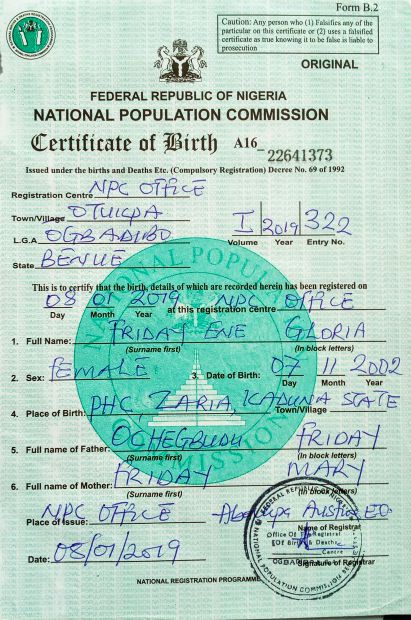 Form B.2
Caution: Any person who (1) Falsifies any of the
particular on this certificate or (2) uses a falsified
certificate as true knowing it to be false is liable to
prosecution
ORIGINAL
FEDERAL REPUBLIC OF NIGERIA
NATIONAL POPULATION COMMISSION
Certificate of Birth A16_ 22641373
Issued under the births and Deaths Etc. (Compulsory Registration) Decree No. 69 of 1992
Registration Centre NPC OFFICE
Town/Village OTUKPA I 2019 322
L.G.A OGBADIBO Volume Year Entry No.
State BENUE
This is to certify that the birth, details of which are recorded herein has been registered on
08 01 2019 at this registration centre NPC OFFICE
Day Month Year
1. Full Name: FRIDAY ENE GLORIA
(Surname first) (In block letters)
2. Sex: FEMALE 3. Date of Birth: 07 11 2002
Day Month Year
4. Place of Birth: PHC, ZARIA, KADUNA STATE Town/Village
5. Full name of Father: OCHEGBUDU FRIDAY
(Surname first) (In block letters)
6. Full name of Mother: FRIDAY MARY
(Surname first) (In block letters)
Place of Issue: NPC OFFICE
Name of Registrar
Date: 08/01/2019
Signature of Registrar
NATIONAL REGISTRATION PROGRAMME